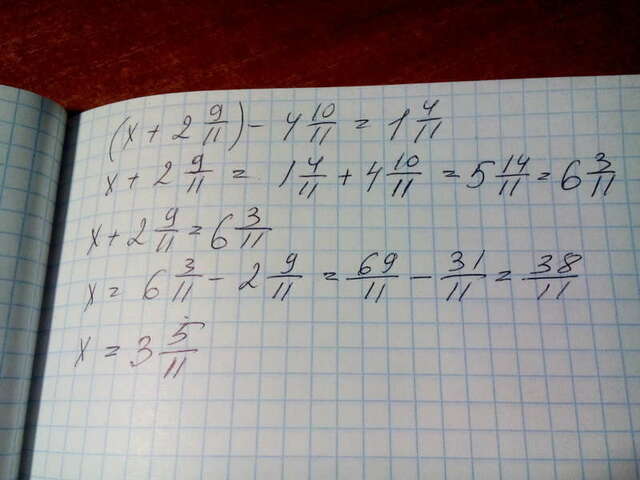 (x + 2 9/11) - 4 10/11 = 1 4/11
x + 2 9/11 = 1 4/11 + 4 10/11 = 5 14/11 = 6 3/11
x + 2 9/11 = 6 3/11
x = 6 3/11 - 2 9/11 = 69/11 - 31/11 = 38/11
x = 3 5/11